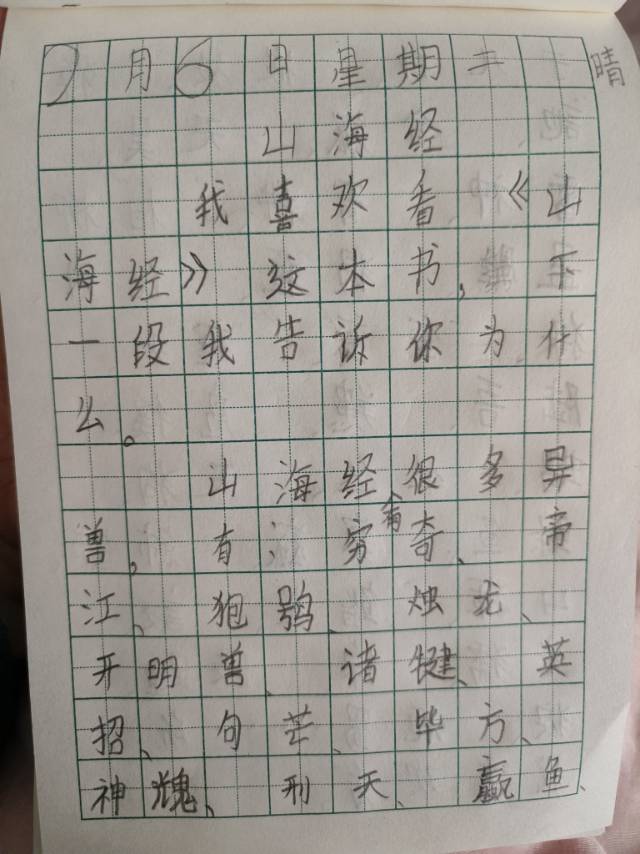 2月6日星期二 晴
山海经
我喜欢看《山
海经》这本书,下
一段我告诉你为什
么。
山海经有很多异
兽,有:穷奇、帝
江、狍鸮、烛龙、
开明兽、诸犍、英
招、句芒、毕方、
神魄、刑天、赢鱼、